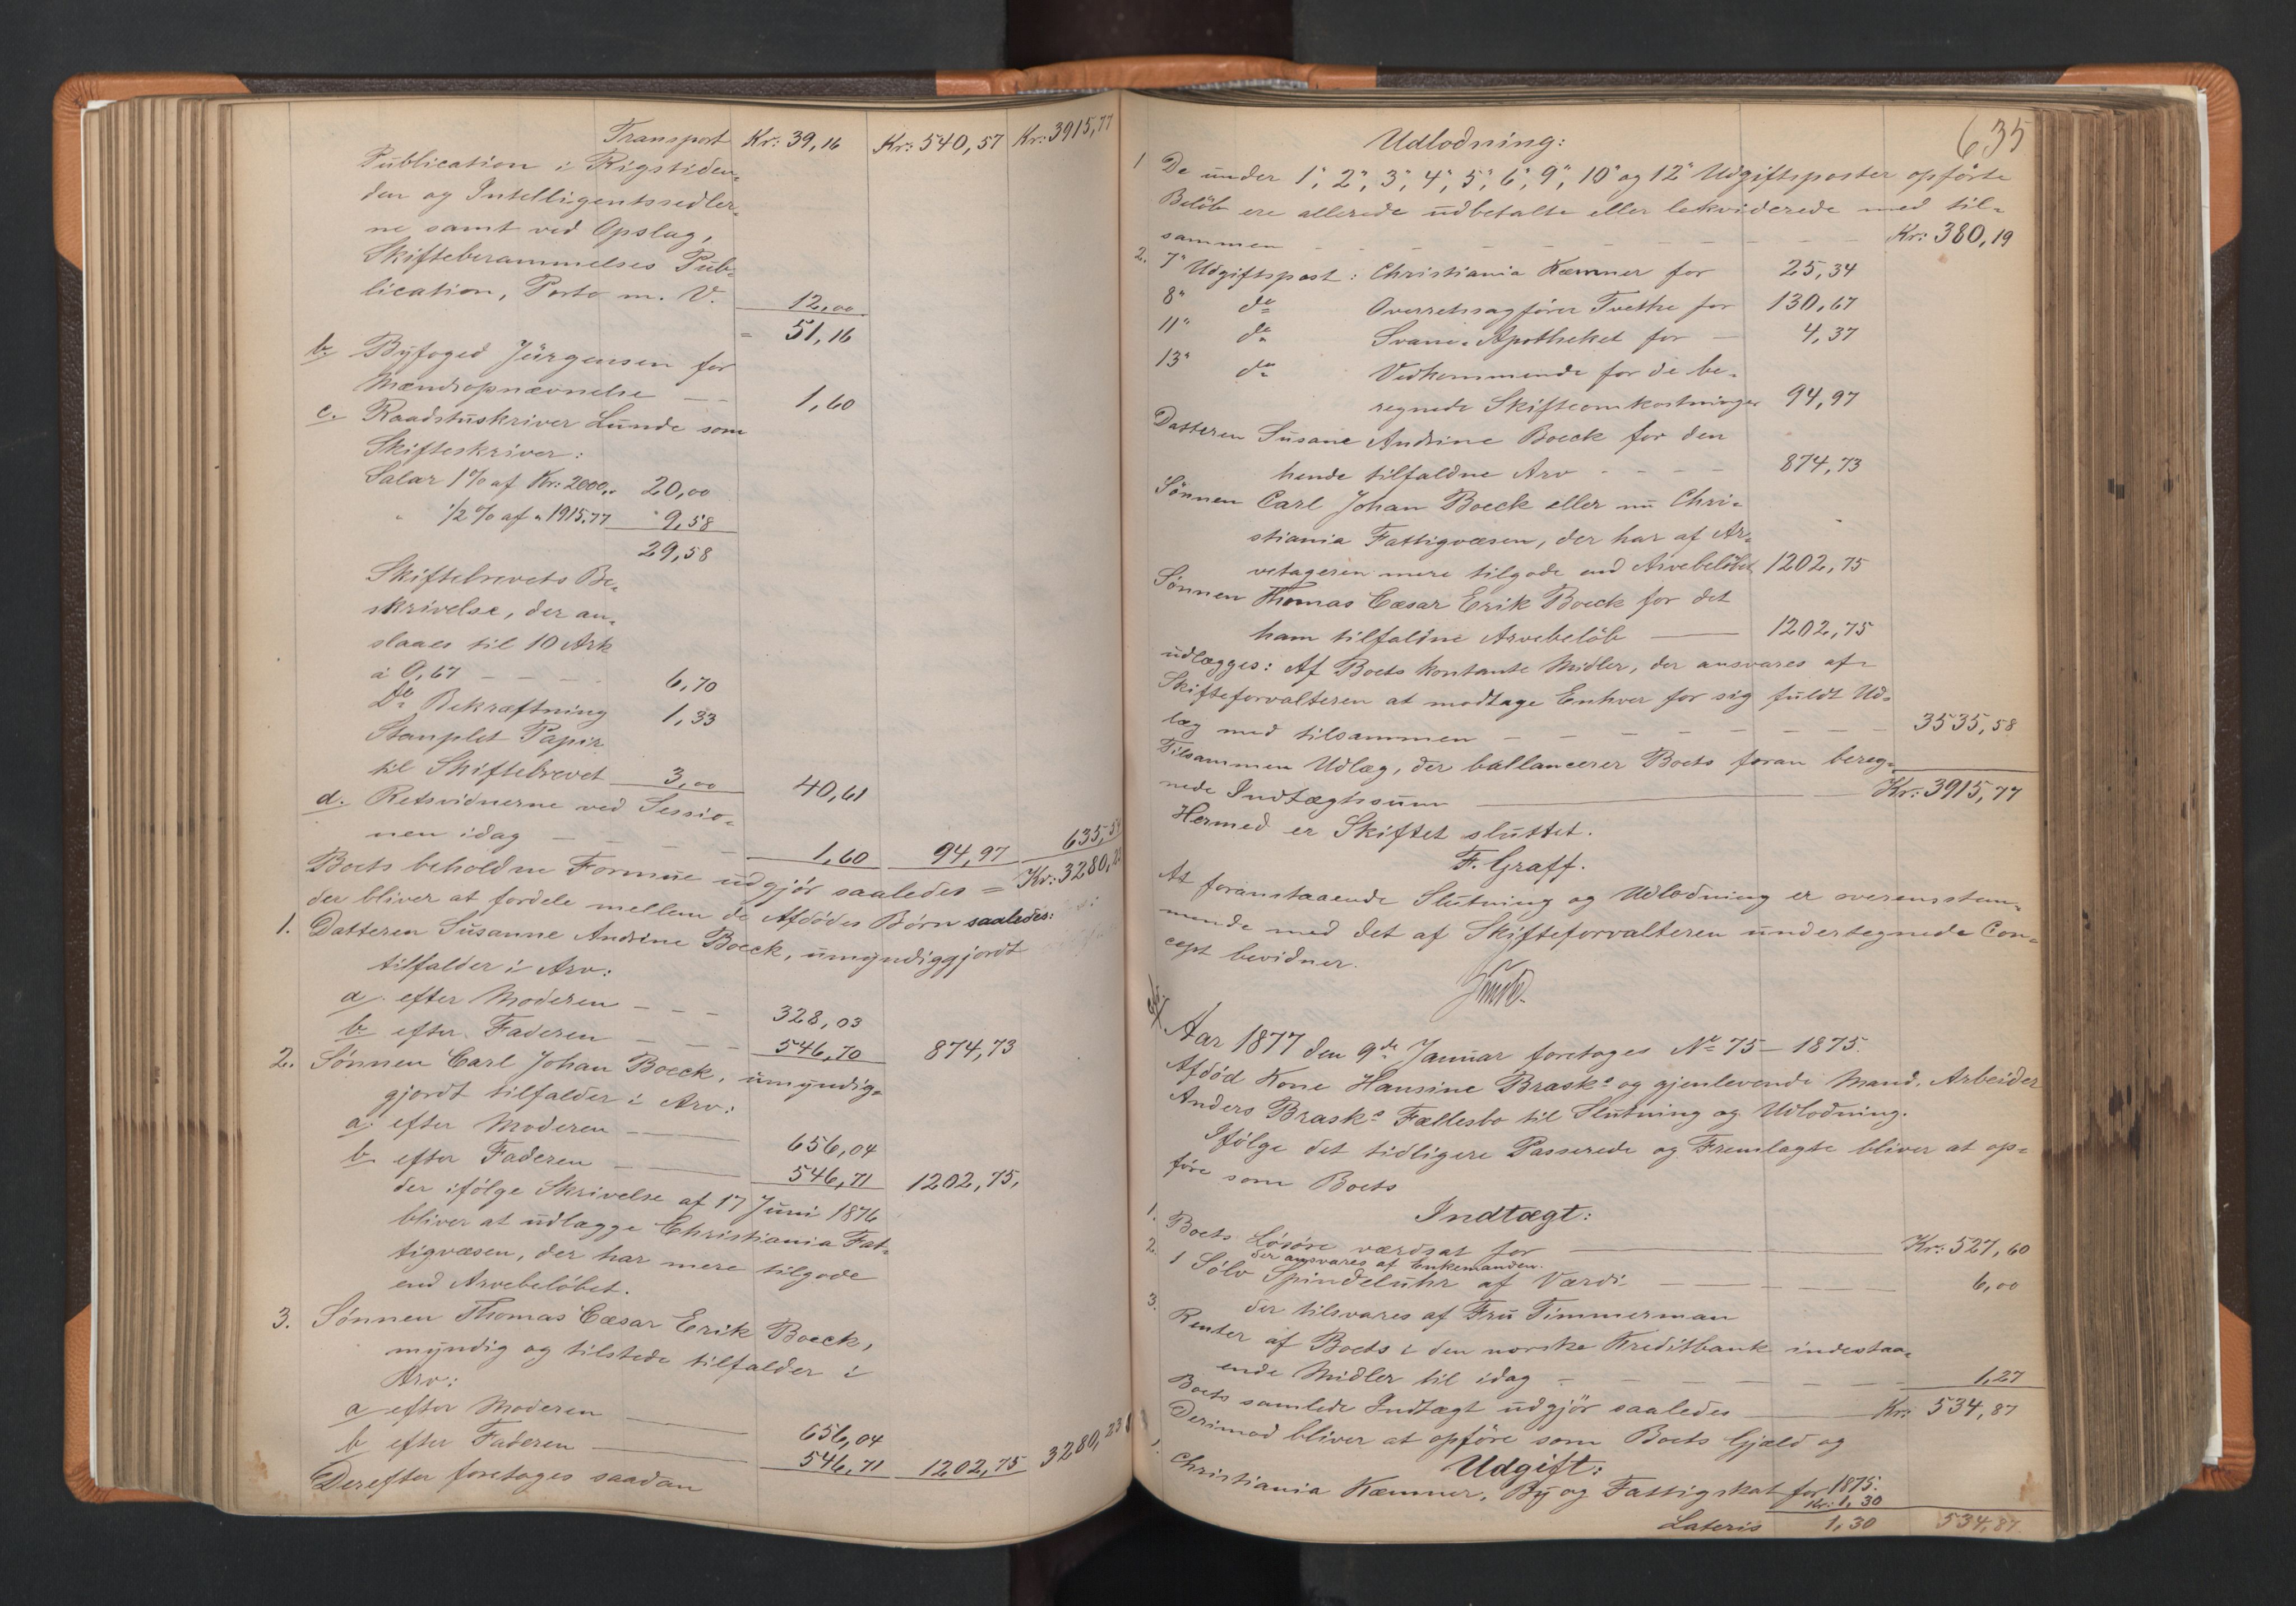 Transport Kr: 39,16 Kr: 540,57 Kr: 3915,77
Publication i Rigstiden-
den og Intelligentssedler-
ne samt ved Opslag,
Skifteberammelses Pub-
lication, Porto m. V. 12,00
= 51,16
b. Byfoged Jürgensen for
Mændsopnævnelse 1,60
c. Raadstuskriver Lunde som
Skifteskriver:
Salær 1% af Kr: 2000,- 20,00
" 1/2% af " 1915,77 " 9,58
29,58
Skiftebrevets Be-
skrivelse, der an-
slaaes til 10 Ark
à 0,67 6,70
Do Bekræftning 1,33
Stemplet Papir
til Skiftebrevet 3,00 40,61
d. Retsvidnerne ved Sessio-
nen idag 1,60 94,97 635,54
Boets beholdne Formue udgjör saaledes = Kr: 3280,23
der bliver at fordele mellem de Afdødes Børn saaledes:
1. Datteren Susanne Andrine Boeck, umyndiggjordt
tilfalder i Arv:
a. efter Moderen 328,03
b. efter Faderen 546,70 874,73
2. Sønnen Carl Johan Boeck, umyndig-
gjordt tilfalder i Arv:
a. efter Moderen 656,04
b. efter Faderen 546,71 1202,75,
der ifölge Skrivelse af 17 Juni 1876
bliver at udlægge Christiania Fat-
tigvæsen, der har mere tilgode
end Arvebelöbet.
3. Sønnen Thomas Cæsar Erik Boeck,
myndig og tilstede tilfalder i
Arv:
a efter Moderen 656,04
b. efter Faderen 546,71 1202,75 3280,23
Derefter foretoges saadan
635
Udlodning:
1 De under 1", 2", 3", 4", 5", 6", 9", 10" og 12" Udgiftsposter opförte
Belöb ere allerede udbetalte eller lekviderede med til-
sammen Kr: 380,19
2. 7" Udgiftspost: Christiania Kæmner for 25,34
8" do Overretssagförer Tvethe for 130,67
11" do Svane-Apotheket for 4,37
13" do Vedkommende for de be-
regnede Skifteomkostninger 94,97
Datteren Susane Andrine Boeck for den
hende tilfaldne Arv 874,73
Sönnen Carl Johan Boeck eller nu Chri-
stiania Fattigvæsen, der har af Ar-
vetageren mere tilgode end Arvebelöbet 1202,75
Sönnen Thomas Cæsar Erik Boeck for det
ham tilfaldne Arvebelöb 1202,75
udlægges: Af Boets kontante Midler, der ansvares af
Skifteforvalteren at modtage Enhver for sig fuldt Ud-
læg med tilsammen 3535,58
Tilsammen Udlæg, der ballancerer Boets foran bereg-
nede Indtægtssum Kr: 3915,77
Hermed er Skiftet sluttet.
F. Graff.
At foranstaaende Slutning og Udlodning er overensstem-
mende med det af Skifteforvalteren undertegnede Con-
cept bevidner.
Lunde
Aar 1877 den 9de Januar foretoges No 75 - 1875.
Afdöd Kone Hansine Brasks og gjenlevende Mand, Arbeider
Anders Brasks Fællesbo til Slutning og Udlodning.
Ifölge det tidligere Passerede og Fremlagte bliver at op-
före som Boets
Indtægt:
1. Boets Lösöre værdsat for Kr: 527,60
der ansvares af Enkemanden.
2. 1 Sölv Spindeluhr af Værdi 6,00
der tilsvares af Fru Timmerman
3. Renter af Boets i den norske Kreditbank indestaa-
ende Midler til idag 1,27
Boets samlede Indtægt udgjör saaledes Kr: 534,87
Derimod bliver at opföre som Boets Gjæld og
Udgift:
1. Christiania Kæmner, By og Fattigskat for 1875.
Kr: 1,30
Lateris 1,30 534,87